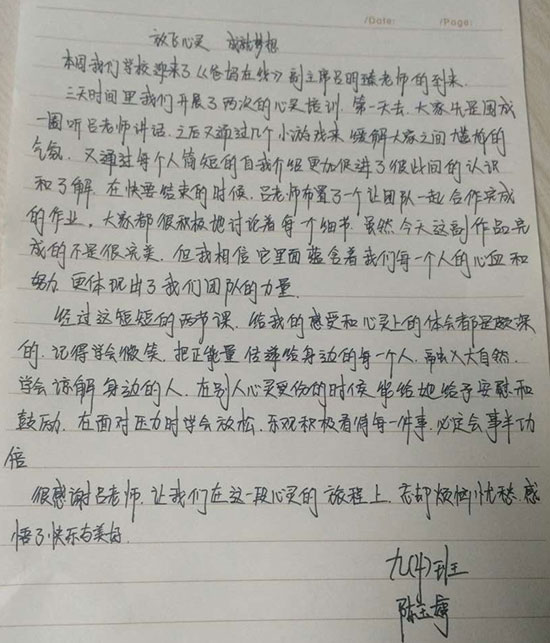 /Date: /Page:
放飞心灵 成就梦想
本周我们学校迎来了《爸妈在线》副主席吕明臻老师的到来.
三天时间里我们开展了两次的心灵培训. 第一天去. 大家先是围成
一圈听吕老师讲话. 之后又通过几个小游戏来缓解大家之间尴尬的
气氛. 又通过每个人简短的自我介绍更加促进了彼此间的认识
和了解. 在快要结束的时候. 吕老师布置了一个让团队一起合作完成
的作业。大家都很积极地讨论着每一个细节. 虽然今天这副作品完
成的不是很完美. 但我相信它里面蕴含着我们每一个人的心血和
努力. 更体现出了我们团队的力量.
经过这短短的两节课. 给我的感受和心灵上的体会都是颇深
的. 记得学会微笑. 把正能量传递给身边的每一个人. 融入大自然.
学会谅解身边的人. 在别人心灵受伤的时候能给他给予安慰和
鼓励. 在面对压力时学会放松. 乐观积极看待每一件事. 必定会事半功
倍
很感谢吕老师. 让我们在这一段心灵的旅程上. 忘却烦恼忧愁. 感
悟了快乐与美好.
九(4)班
陈